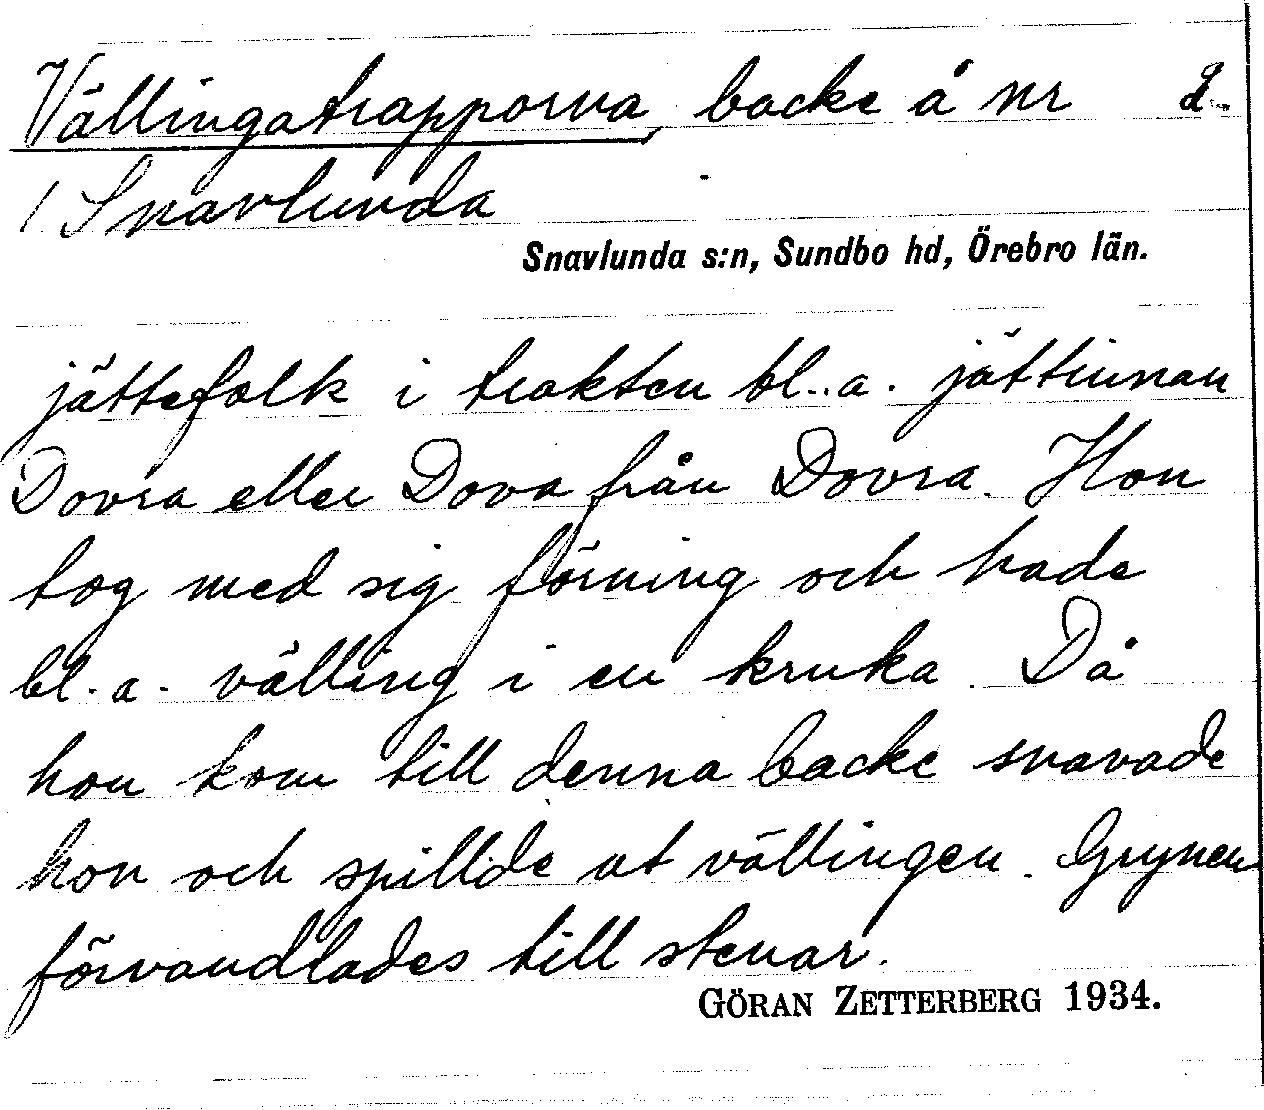 Vällingatrapporna, backe å nr 2
1 Snavlunda
Snavlunda s:n, Sundbo hd, Örebro län.
jättefolk i trakten bl.a. jättinnan
Dovra eller Dova från Dovra. Hon
tog med sig förning och hade
bl.a. välling i en kruka. Då
hon kom till denna backe snavade
hon och spillde ut vällingen. Grynen
förvandlades till stenar.
GÖRAN ZETTERBERG 1934.